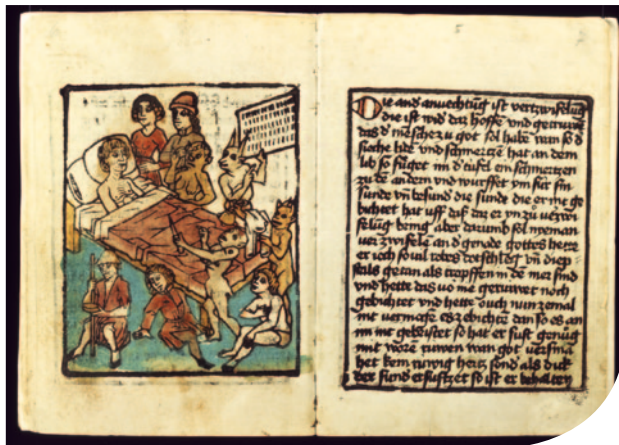 Die and anvechtūg ist vertzwifelūg
die ist wid daz hoffe vnd getruwe
das d mēsche zu got sol habē wan so d
sieche lidē vnd schmertzē hat an dem
lib so fūget im d tufel ein schmertzen
zu dē andern vnd wurffet ym für sin
sunde vn besund die sunde die er nie ge
bichtet hat uff daz daz er yn zu verzwi
felūg bring aber darumb sol nyeman
verzwifelē an d gnade gottes hette
er ioch so vil totes dotschleg vn diep
steils getan als tropffen in dē mer sind
vnd hette das vō nie geruwet noch
gebichtet vnd hette ouch nun zemal
nit vermage es ze bichtē dan so es an
im nit gebristet so hat er sust genūg
mit ruwen wan got versma
het kein ruwig hertz sond als dick
der sund ersufftzet so ist er behalten